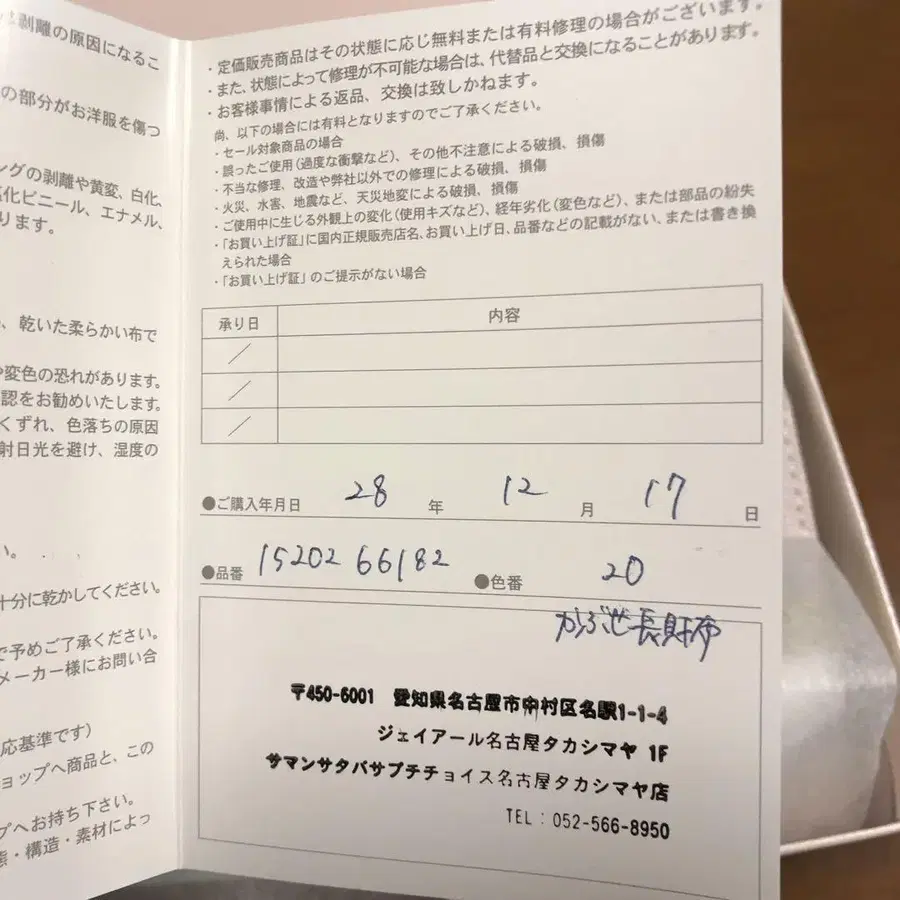 は剥離の原因になるこ
の部分がお洋服を傷つ
ングの剥離や黄変、白化、
塩化ビニール、エナメル、
ります。
、乾いた柔らかい布で
や変色の恐れがあります。
認をお勧めいたします。
くずれ、色落ちの原因
射日光を避け、湿度の
い。
十分に乾かしてください。
で予めご了承ください。
メーカー様にお問い合
応基準です）
ョップへ商品と、この
プへお持ち下さい。
態・構造・素材によっ
・定価販売商品はその状態に応じ無料または有料修理の場合がございます。
・また、状態によって修理が不可能な場合は、代替品と交換になることがあります。
・お客様事情による返品、交換は致しかねます。
尚、以下の場合には有料となりますのでご了承ください。
・セール対象商品の場合
・誤ったご使用（過度な衝撃など）、その他不注意による破損、損傷
・不当な修理、改造や弊社以外での修理による破損、損傷
・火災、水害、地震など、天災地変による破損、損傷
・ご使用中に生じる外観上の変化（使用キズなど）、経年劣化（変色など）、または部品の紛失
・「お買い上げ証」に国内正規販売店名、お買い上げ日、品番などの記載がない、または書き換
えられた場合
・「お買い上げ証」のご提示がない場合
承り日 内容
／
／
／
●ご購入年月日 28 年 12 月 17 日
●品番 15202 66182 ●色番 20
かぶせ長財布
〒450-6001 愛知県名古屋市中村区名駅1-1-4
ジェイアール名古屋タカシマヤ 1F
サマンサタバサプチチョイス名古屋タカシマヤ店
TEL：052-566-8950